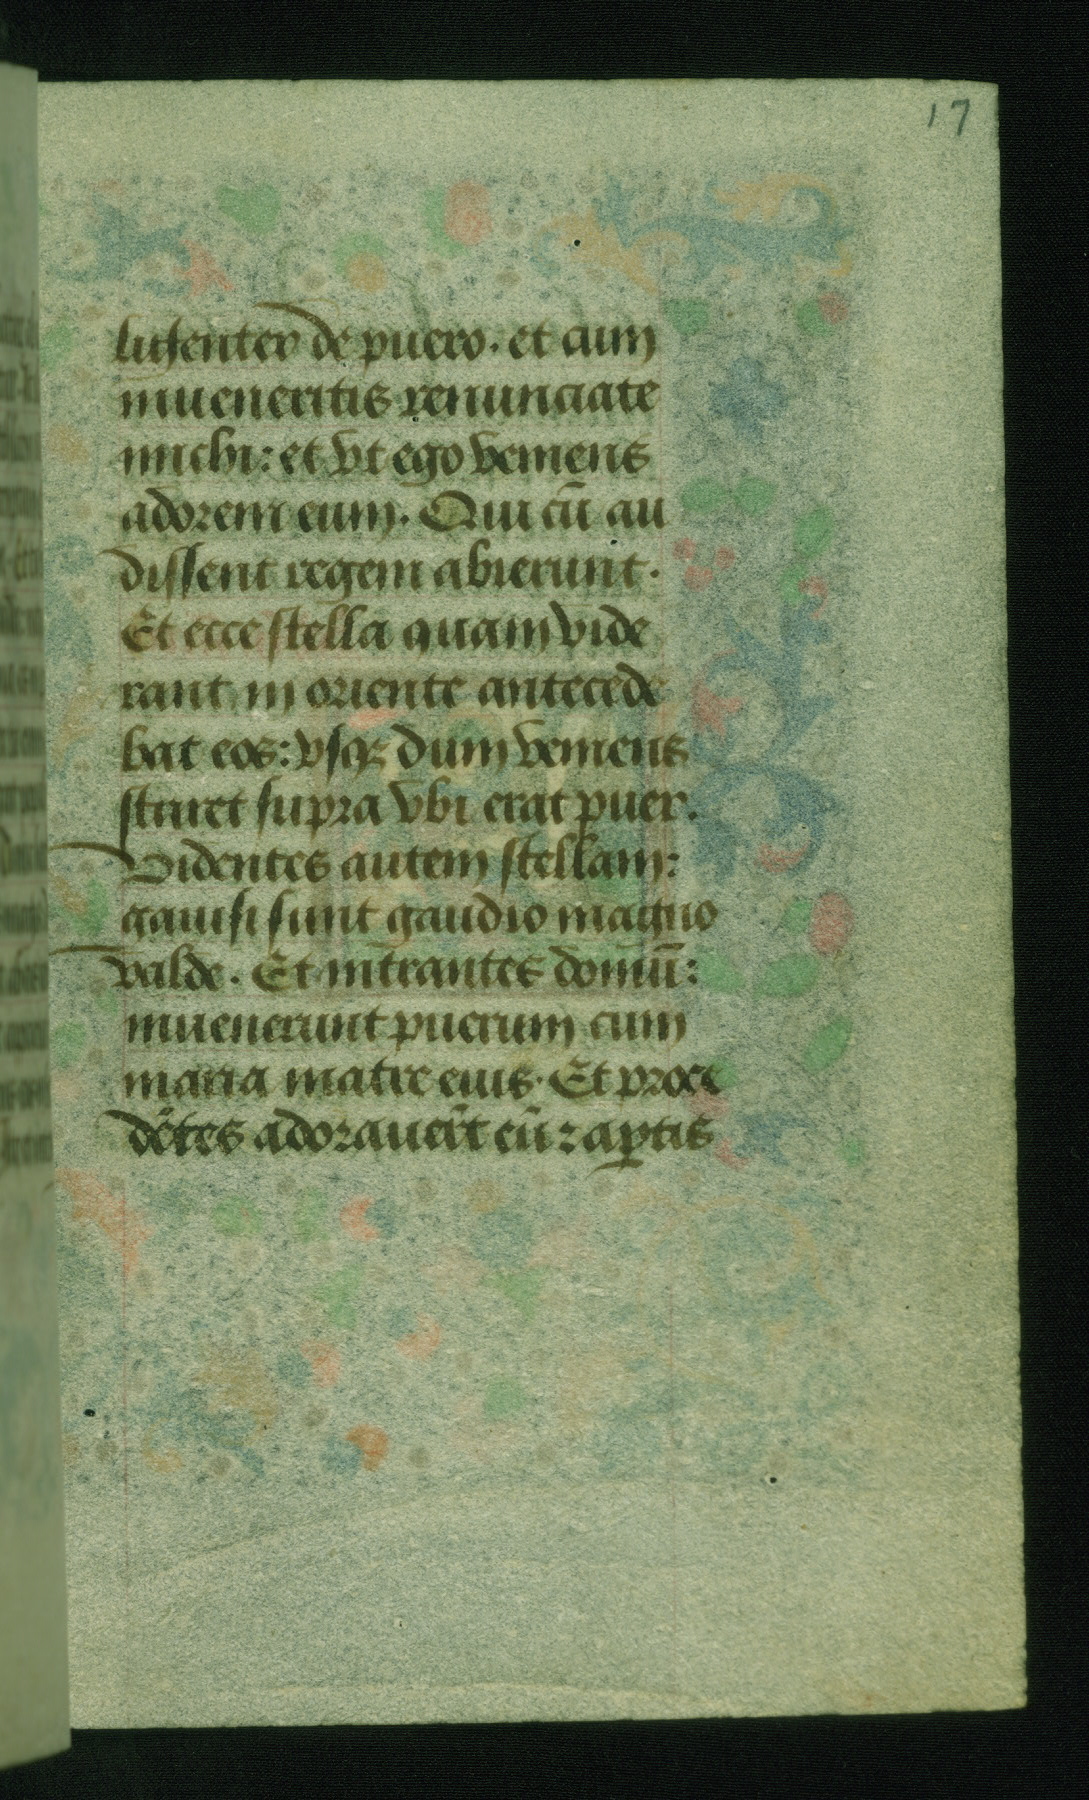 17
ligenter de puero. et cum
inueneritis renunciate
michi: et vt ego veniens
adorem eum. Qui cū au
dissent regem abierunt.
Et ecce stella quam vide
rant in oriente antecede
bat eos: vsqz dum veniens
staret supra vbi erat puer.
Videntes autem stellam:
gauisi sunt gaudio magno
valde. Et intrantes domū:
inuenerunt puerum cum
maria matre eius. Et proce
dētes adorauer̄t eū ⁊ aꝑtis